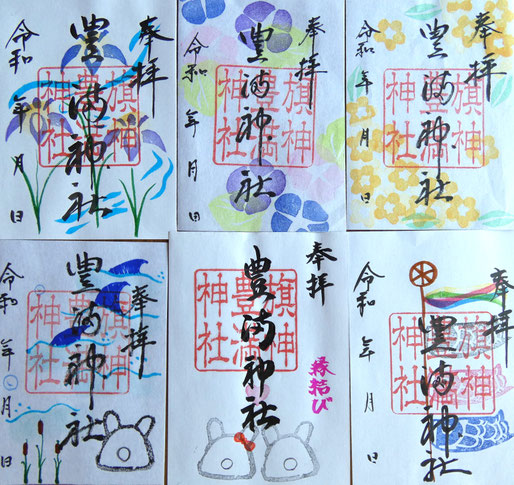 奉拝
豊満神社
旗神
豊満
神社
令和 年 月 日
奉拝
豊満神社
旗神
豊満
神社
令和 年 月 日
奉拝
豊満神社
旗神
豊満
神社
令和 年 月 日
奉拝
豊満神社
旗神
豊満
神社
令和 年 月 日
奉拝
縁結び
豊満神社
旗神
豊満
神社
奉拝
豊満神社
旗神
豊満
神社
令和 年 月 日